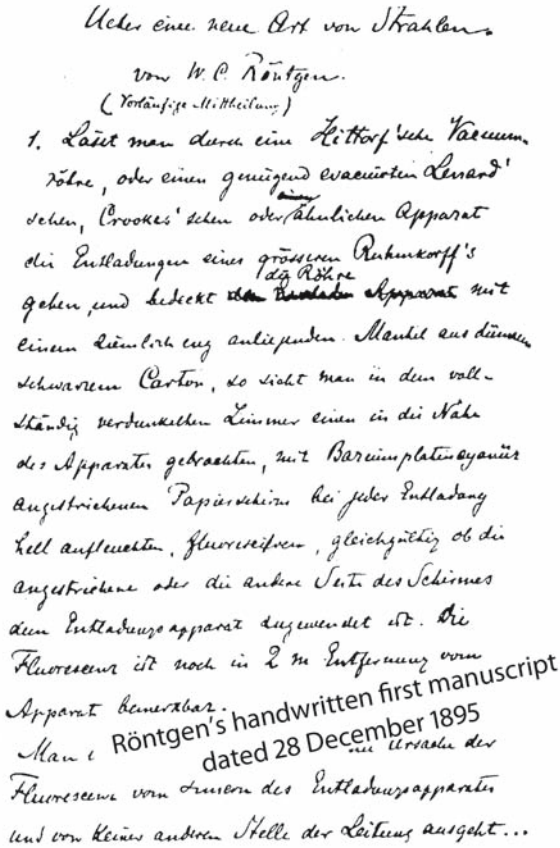 Ueber eine neue Art von Strahlen.
von W. C. Röntgen.
(Vorläufige Mittheilung)
1. Lässt man durch eine Hittorf'sche Vacuum-
röhre, oder einen genügend evacuirten Lenard'
schen, Crookes'schen oder einen ähnlichen Apparat
die Entladungen eines grösseren Ruhmkorff's
gehen, und bedeckt die Röhre mit
einem ziemlich eng anliegenden Mantel aus dünnem
schwarzem Carton, so sieht man in dem voll-
ständig verdunkelten Zimmer einen in die Nähe
des Apparates gebrachten, mit Bariumplatincyanür
angestrichenen Papierschirm bei jeder Entladung
hell aufleuchten, fluoresciren, gleichgültig ob die
angestrichene oder die andere Seite des Schirmes
dem Entladungsapparat zugewendet ist. Die
Fluorescenz ist noch in 2 m Entfernung vom
Apparat bemerkbar.
Röntgen's handwritten first manuscript
dated 28 December 1895
Man Ursache der
Fluorescenz vom Innern des Entladungsapparates
und von keiner anderen Stelle der Leitung ausgeht...